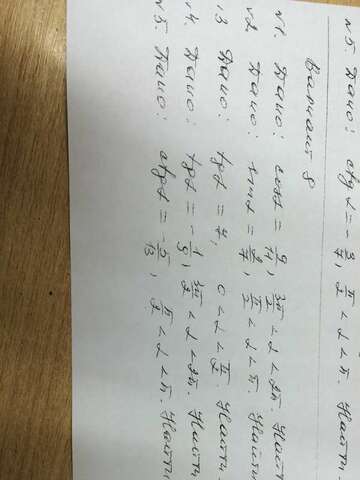 №5. Дано: ctg α = - 3/7, π/2 < α < π. Найти
Вариант 8
№1. Дано: cos α = 9/11, 3π/2 < α < 2π. Найт
№2 Дано: sin α = 3/7, π/2 < α < π. Найти
№3 Дано: tg α = 7, 0 < α < π/2. Найти
№4. Дано: tg α = - 1/9, 3π/2 < α < 2π. Найти
№5. Дано: ctg α = - 5/13, π/2 < α < π. Найти